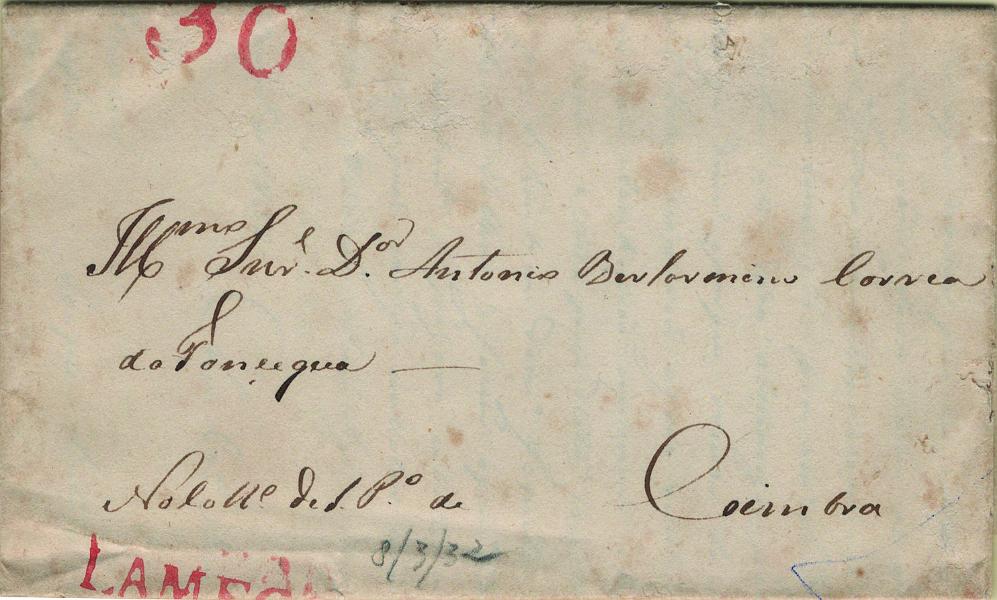 30
Illmo Snr. Dor Antonio Berlarmino Correa
da Fonsegua
No Colle. de S. P.o de Coimbra
8/3/32
LAMEGO